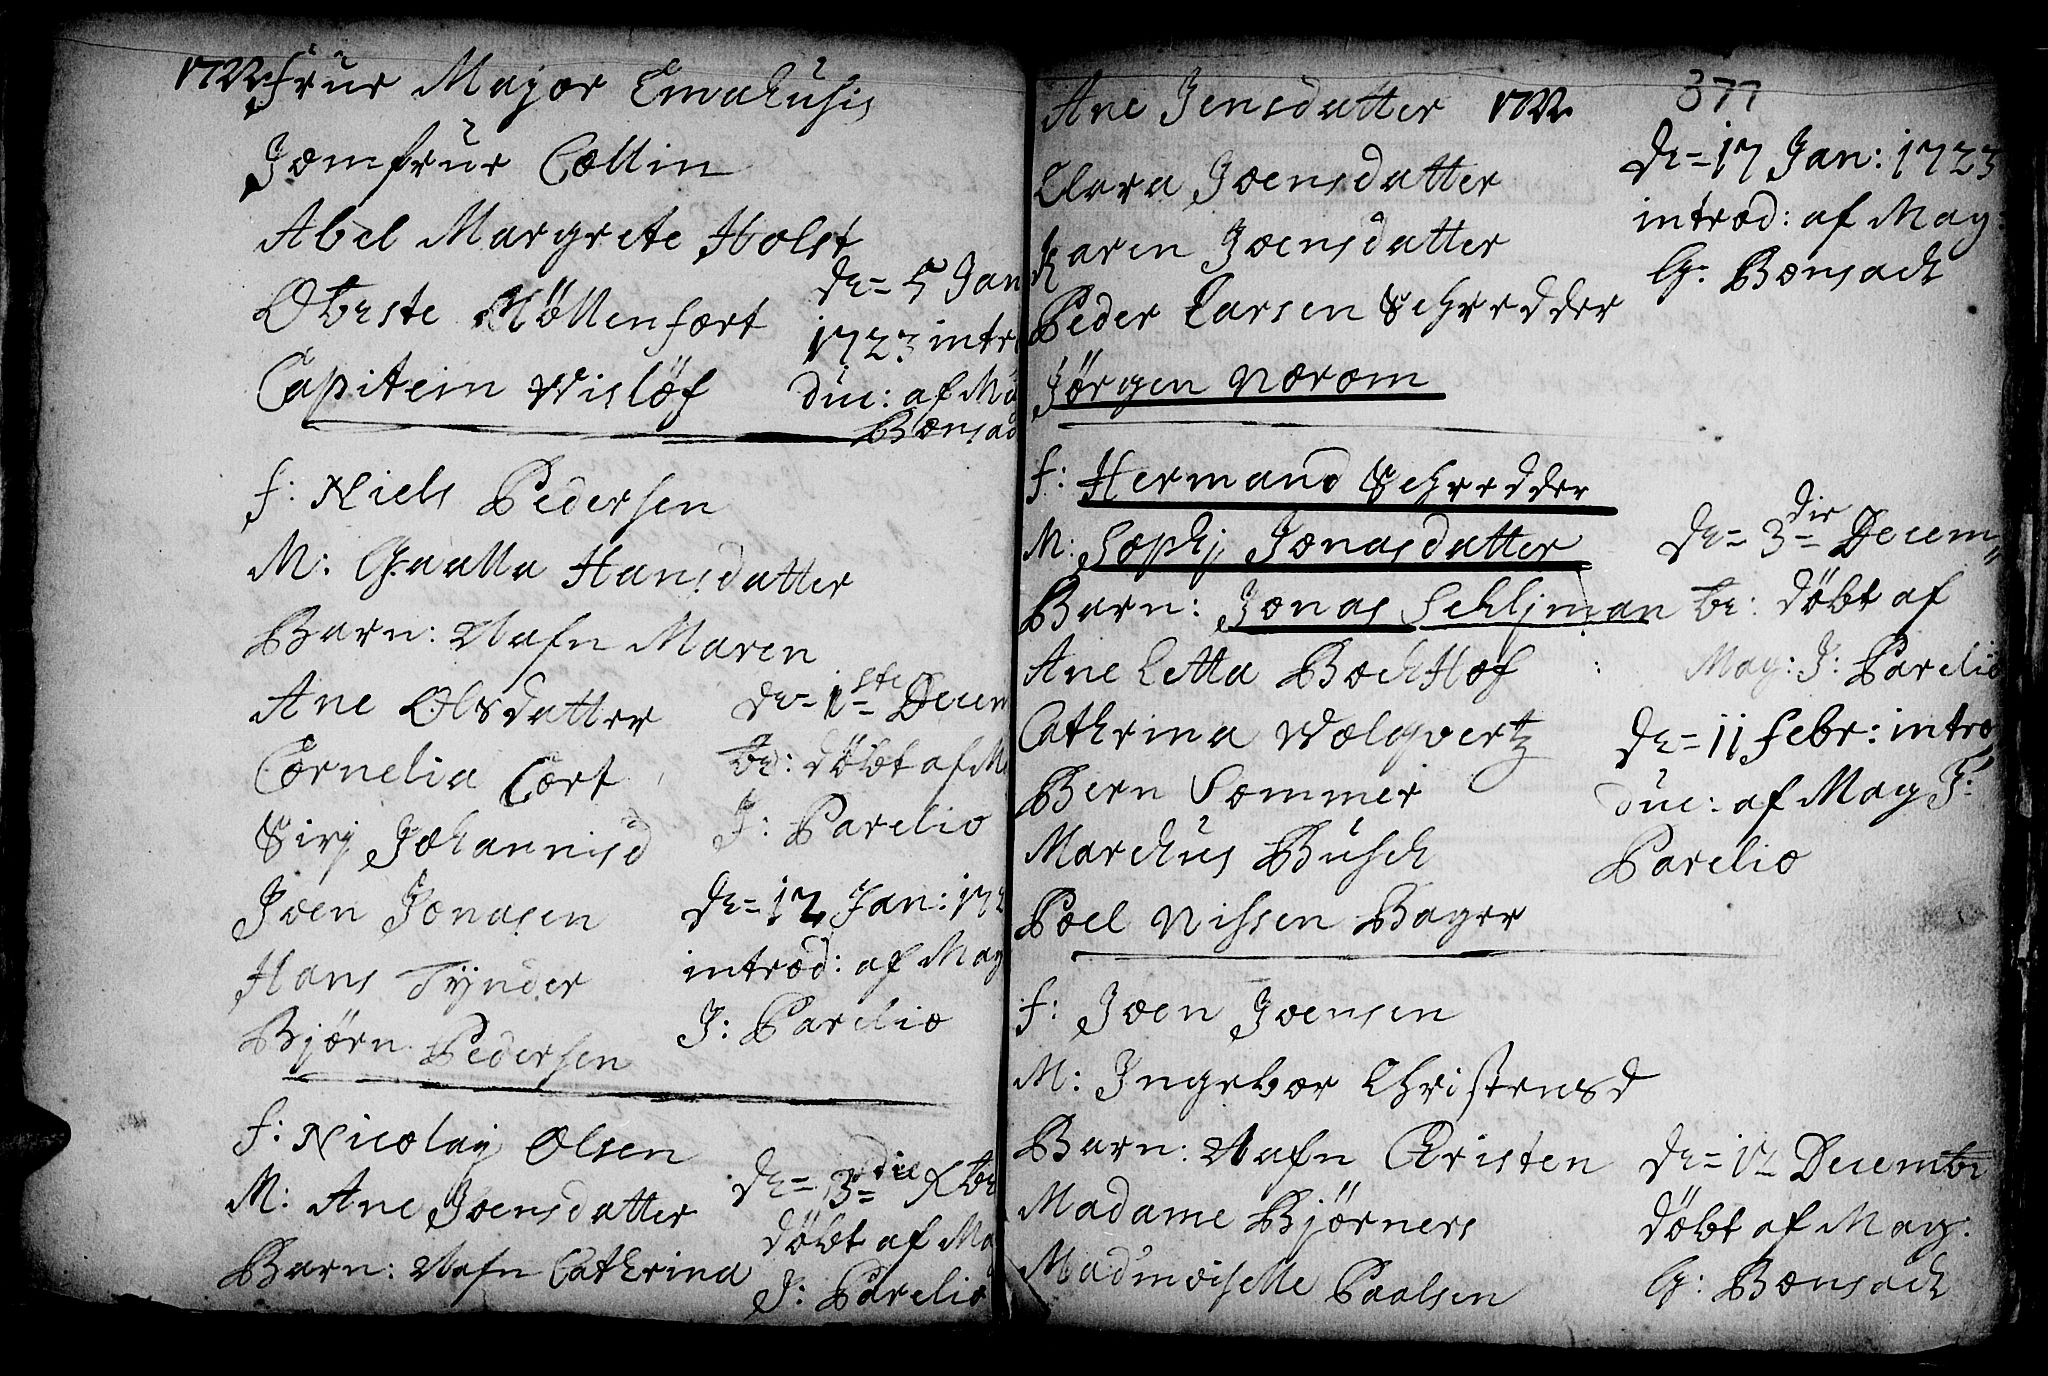 1722. Frur Major Emahusis
Jomfrur Collin
Abel Margrete Holst
Obriste Möllenfort
Capitein Wislöf
de= 5 Jan
1723 intro
duc: af Ma
Bonsac
f: Niels Pedersen
M: Gualla Hansdatter
Barn: Nafn Maren
Ane Olsdatter
Cornelia Cort
Sirj Johannisd
Joen Jonasen
Hans Tÿnder
Bjørn Pedersen
de= 1ste Decem
br: döbt af M
J: Parelio
de= 12 Jan: 172
introd: af May
J: Parelio
f: Nicolaij Olsen
M: Ane Joensdatter
Barn: Nafn Cathrina
de= 3die Xbr
döbt af Ma
J: Parelio
Ane Jensdatter 1722. 377
Clara Joensdatter
Karen Joensdatter
Peder Larsen Schredder
Jörgen Norom
de= 17 Jan: 1723
introd: af May:
G: Bonsach
f: Hermand Schredder
M: Sophj Jonasdatter
Barn: Jonas Schljman
Ane Letta Bochhof
Cathrina Wolgvertz
Bern Sommer
Marchus Busch
Poel Nissen Bager
de= 3die Decem=
br: döbt af
May: J: Parelio
de= 11 febr: intro
duc: af May J:
Parelio
f: Joen Joensen
M: Ingebor Christensd
Barn: Nafn Christen
Madame Bjørners
Madmoiselle Paalsen
de= 12 Decembr
döbt af May:
G: Bonsach